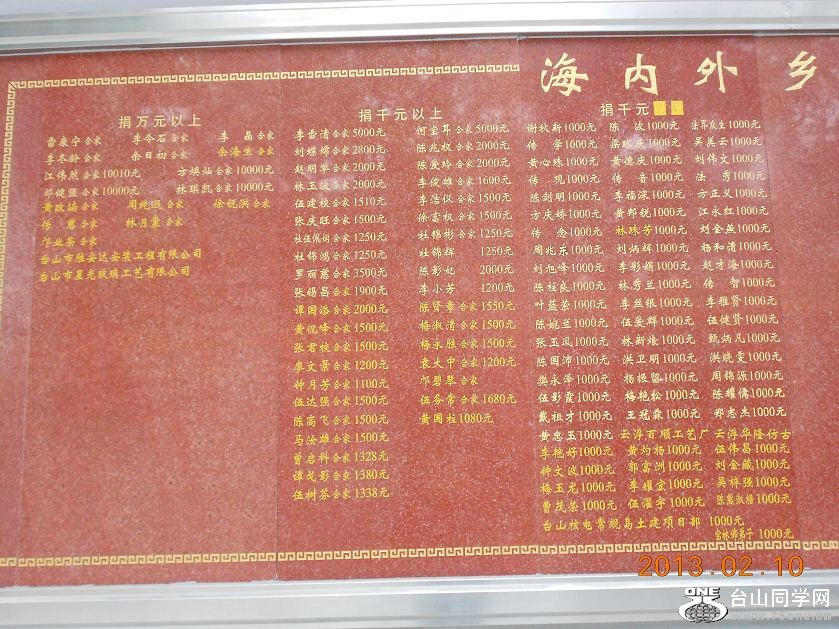 海内外乡
捐万元以上
雷康宁合家 李今石合家 李晶合家
李冬龄合家 余日初合家 余海生合家
江伟然合家10010元 方焕灿合家10000元
邓健强合家10000元 林琪凯合家10000元
黄政涌合家 周纯迥合家 徐锐洪合家
传慧合家 林月童合家
邝业荣合家
台山市胜安达安装工程有限公司
台山市星光玻璃工艺有限公司
捐千元以上
李雷清合家5000元 何宝耳合家5000元
刘嫦嫦合家2800元 陈兆权合家2000元
赵明军合家2000元 陈爱玲合家2000元
林玉波合家2000元 李俊雄合家1600元
伍建校合家1510元 李浩仪合家1500元
张庆旺合家1500元 徐富权合家1500元
杜伍佩问合家1250元 杜锦彬合家1250元
杜锦鸿合家1250元 杜锦辉 1250元
罗丽慈合家3500元 陈影妃 2000元
张锡昌合家1900元 李小芳 1200元
谭国添合家2000元 陈贤章合家1550元
黄侃峰合家1500元 梅淑清合家1500元
张君校合家1500元 梅永胜合家1500元
廖文景合家1200元 袁火中合家1200元
钟月芳合家1100元 邝碧琴合家
伍达强合家1500元 伍务常合家1680元
陈高飞合家1500元 黄国柱1080元
马汝雄合家1500元
曾启科合家1328元
谭戈影合家1380元
伍树芬合家1338元
捐千元
谢秋新1000元 陈波1000元 法界众生1000元
传学1000元 梁咏庆1000元 吴美云1000元
黄心珠1000元 黄德庆1000元 刘伟文1000元
传观1000元 传音1000元 法秀1000元
陈剑明1000元 李福深1000元 方正义1000元
方庆娇1000元 黄邦锐1000元 江永红1000元
传念1000元 林咏芳1000元 刘金燕1000元
周兆东1000元 刘炳辉1000元 杨和清1000元
刘旭峰1000元 李彩娟1000元 赵才海1000元
陈柱良1000元 林秀兰1000元 传智1000元
叶蓝荣1000元 李丝银1000元 李雅贤1000元
陈婉兰1000元 伍晏群1000元 伍健贤1000元
张玉凤1000元 林新燎1000元 甄炳凡1000元
陈国沛1000元 洪卫明1000元 洪晓雯1000元
樊永泽1000元 杨振留1000元 周锦源1000元
伍影霞1000元 梅艳松1000元 陈耀儒1000元
戴祖才1000元 王冠霖1000元 郑志杰1000元
黄忠玉1000元 云浮百顺工艺厂 云浮华隆仿古
李艳好1000元 黄灼梅1000元 伍伟昌1000元
钟文波1000元 郭富洲1000元 刘金藏1000元
梅玉龙1000元 李耀宏1000元 吴梓强1000元
曹茂荣1000元 伍濯宇1000元 陈嵩淑榕1000元
台山核电常规岛土建项目部 1000元
宝林佛弟子1000元
2013.02.10
ONE
台山同学网